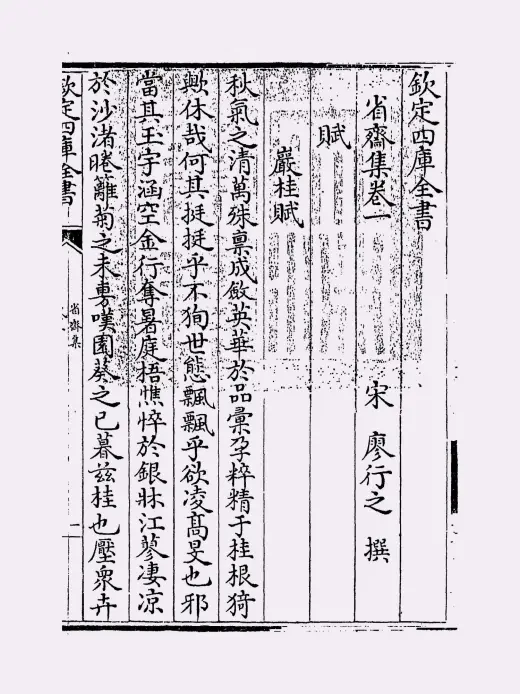 欽定四庫全書
省齋集卷一
宋 廖行之 撰
賦
巖桂賦
秋氣之清萬殊稟成斂英華於品彚孕粹精于桂根猗
歟休哉何其挺挺乎不狥世態飄飄乎欲凌髙旻也邪
當其玉宇涵空金行奪暑庭梧憔悴於銀牀江蓼凄凉
於沙渚睠離菊之未旉嘆園葵之已暮兹桂也壓衆卉
欽定四庫全書
省齋集
一